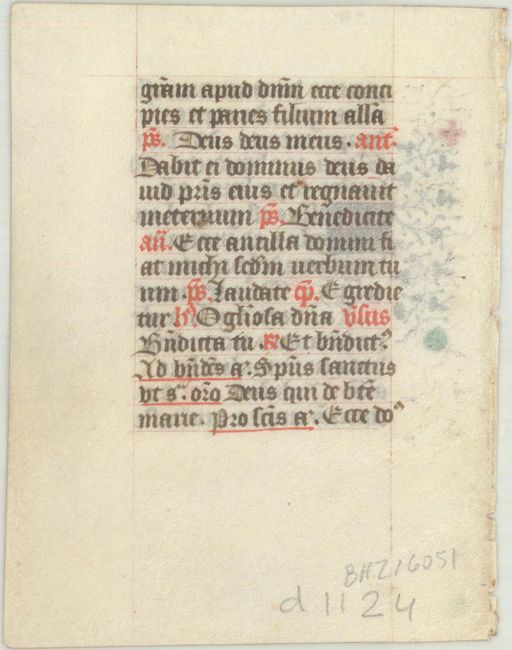 gr̄am apud dn̄m ecce conci
pies et paries filium all̄a
p̄s. Deus deus meus. ant̄.
Dabit ei dominus deus da
uid pr̄is eius et regnauit
ineternum p̄s. Benedicite
an̄. Ecce ancilla domini fi
at michi scd̄m uerbum tu
um. p̄s. Laudate cp̄. Egredie
tur h̓ O gl̄iosa dn̄a v̄sus
Bn̄dicta tu. R̄ Et bn̄dict᾽
Ad bn̄dc̄s a᷎. Sp̄us sanctus
vt sᵃ. or̄o Deus qui de bt̄e
marie. Pro scīs a᷎. Ecce do᾽
BHZ16051
d 1124